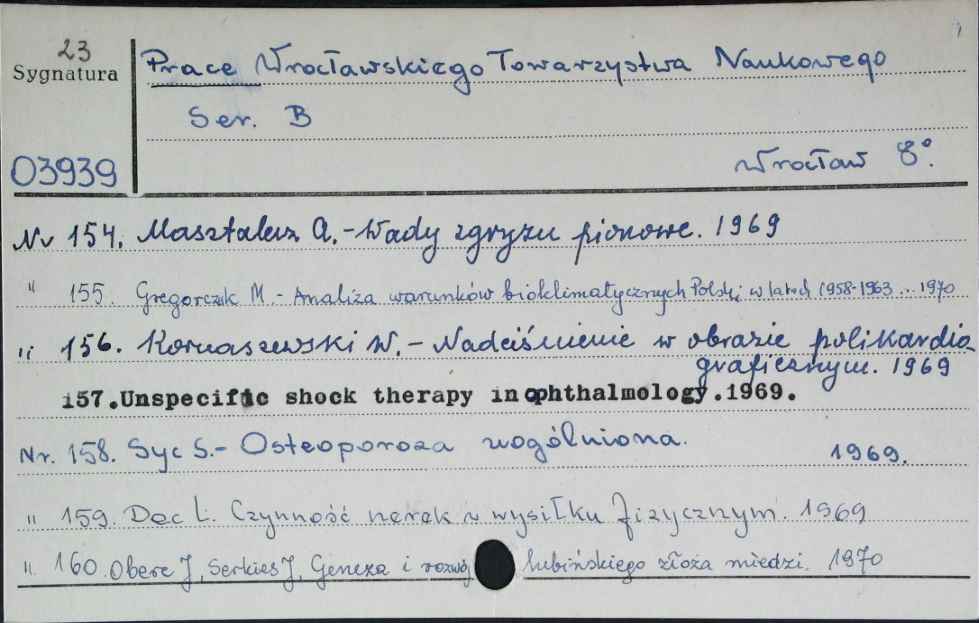 23
Sygnatura
Prace Wrocławskiego Towarzystwa Naukowego
Ser. B
03939
Wrocław 8°.
Nr 154. Masztalerz A.-Wady zgryzu pionowe. 1969
" 155. Gregorczuk M. - Analiza warunków bioklimatycznych Polski w latach 1958-1963 ... 1970
" 156. Kornaszewski W.- Nadciśnienie w obrazie polikardio-
graficznym. 1969
157.Unspecific shock therapy in ophthalmology.1969.
Nr. 158. Syc S.- Osteoporoza uogólniona. 1969.
" 159. Dec L. Czynność nerek w wysiłku fizycznym. 1969
" 160. Oberc J, Serkies J, Geneza i rozwój lubińskiego złoża miedzi. 1970